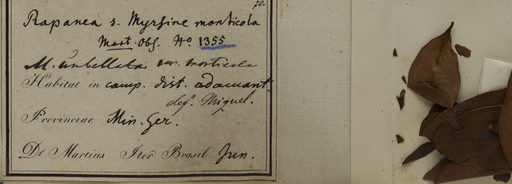 70.
Rapanea s. Myrsine monticola
Mart. Obs. No 1355
M. umbellata var. monticola
Habitat in camp. dist. adamant.
def. Miquel.
Provinciae Min. Ger.
Dr Martius Iter Brasil. Jun.